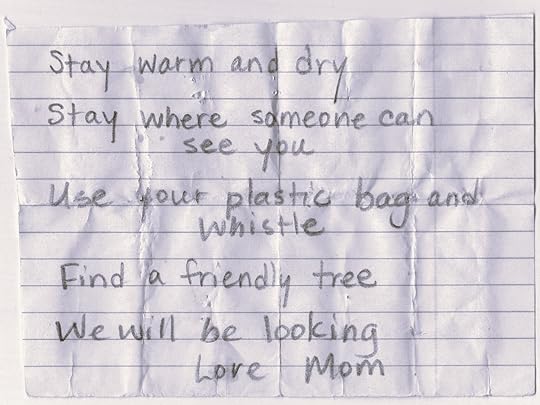 Stay warm and dry
Stay where someone can
see you
Use your plastic bag and
whistle
Find a friendly tree
We will be looking
Love Mom